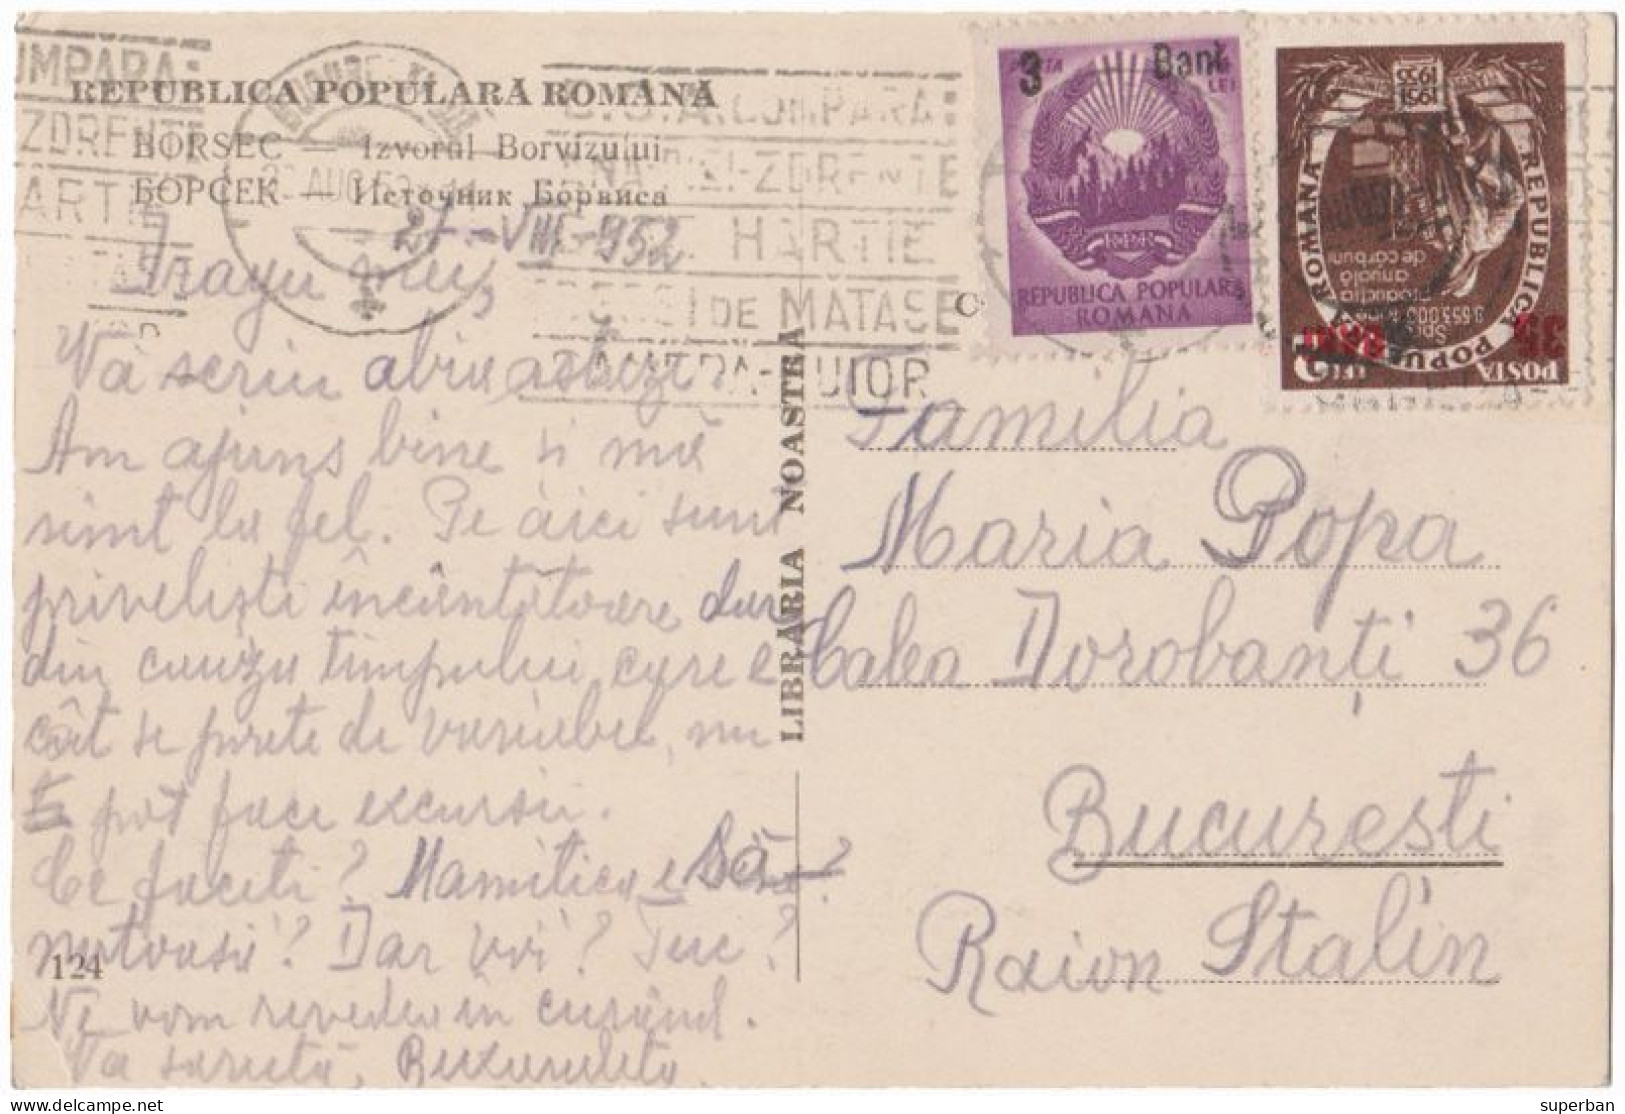 REPUBLICA POPULARĂ ROMÂNĂ
BORSEC — Izvorul Borvizului
БОРСЕК — Источник Борвиса
UMPARA:
ZDRENTE
ARTIE
COMPARA:
SI-ZDRENTE
HARTIE
DE MATASE
AUG
3 Bani
LEI
RPR
REPUBLICA POPULARĂ
ROMÂNĂ
35 Bani
POSTA
LEI
REPUBLICA POPULARĂ ROMÂNĂ
1951 1955
3.655.000 tone
productia
anuală
de carbuni
27-VIII-952
Dragii mei,
Vă scriu abia astăzi.
Am ajuns bine si mă
simt la fel. Pe aici sunt
priveliști încântătoare dar
din cauza timpului, care e
cât se poate de variabil, nu
pot face excursii.
Ce faceti? Mamitica e să-
nătoasă? Dar voi? Tuc?
Ne vom revedea în curând.
Vă sărută,
124
LIBRĂRIA NOASTRĂ
Familia
Maria Popa
Calea Dorobanți 36
Bucuresti
Raion Stalin
delcampe.net
superban